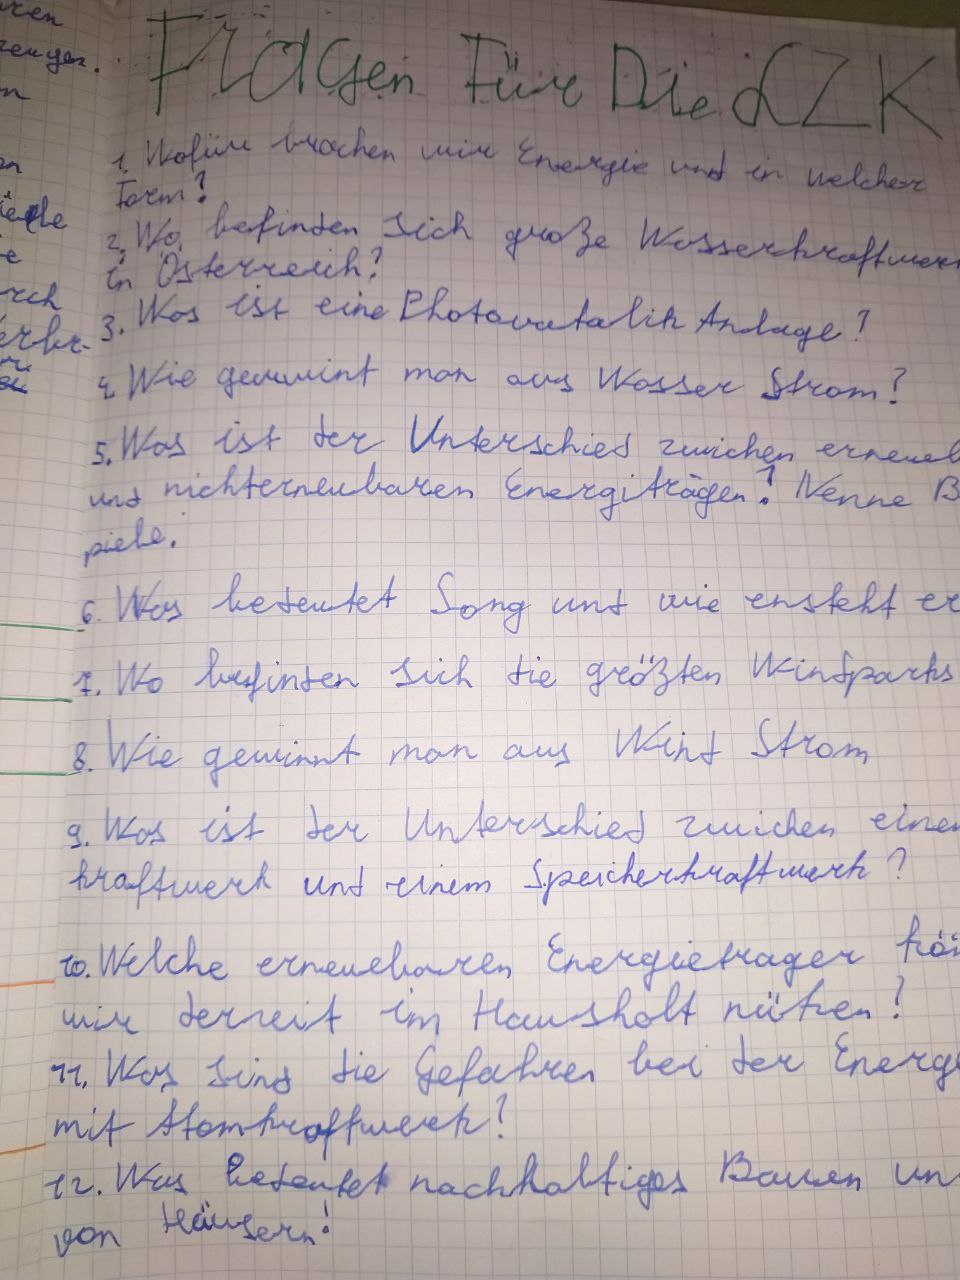 Fragen Für Die LZK
1. Wofür brachen wir Energie und in welcher
Form?
2. Wo befinden sich große Wasserkraftwer
in Österreich?
3. Was ist eine Photovotalik Anlage?
4. Wie gewwint man aus Wasser Strom?
5. Was ist der Unterschied zwichen erneueb
und nichterneubaren Energiträgen? Nenne B
piele.
6. Was bedeutet Song und wie ensteht er
7. Wo befinden sich die größten Windparks
8. Wie gewinnt man aus Wind Strom
9. Was ist der Unterschied zwichen einem
kraftwerk und einem Speicherkraftwerk?
10. Welche erneuebaren Energietrager kön
wir derzeit im Haushalt nützen?
11. Was sind die Gefahren bei der Energ
mit Atomkraftwerk?
12. Was bedeutet nachhaltiges Bauen un
von Häusern?